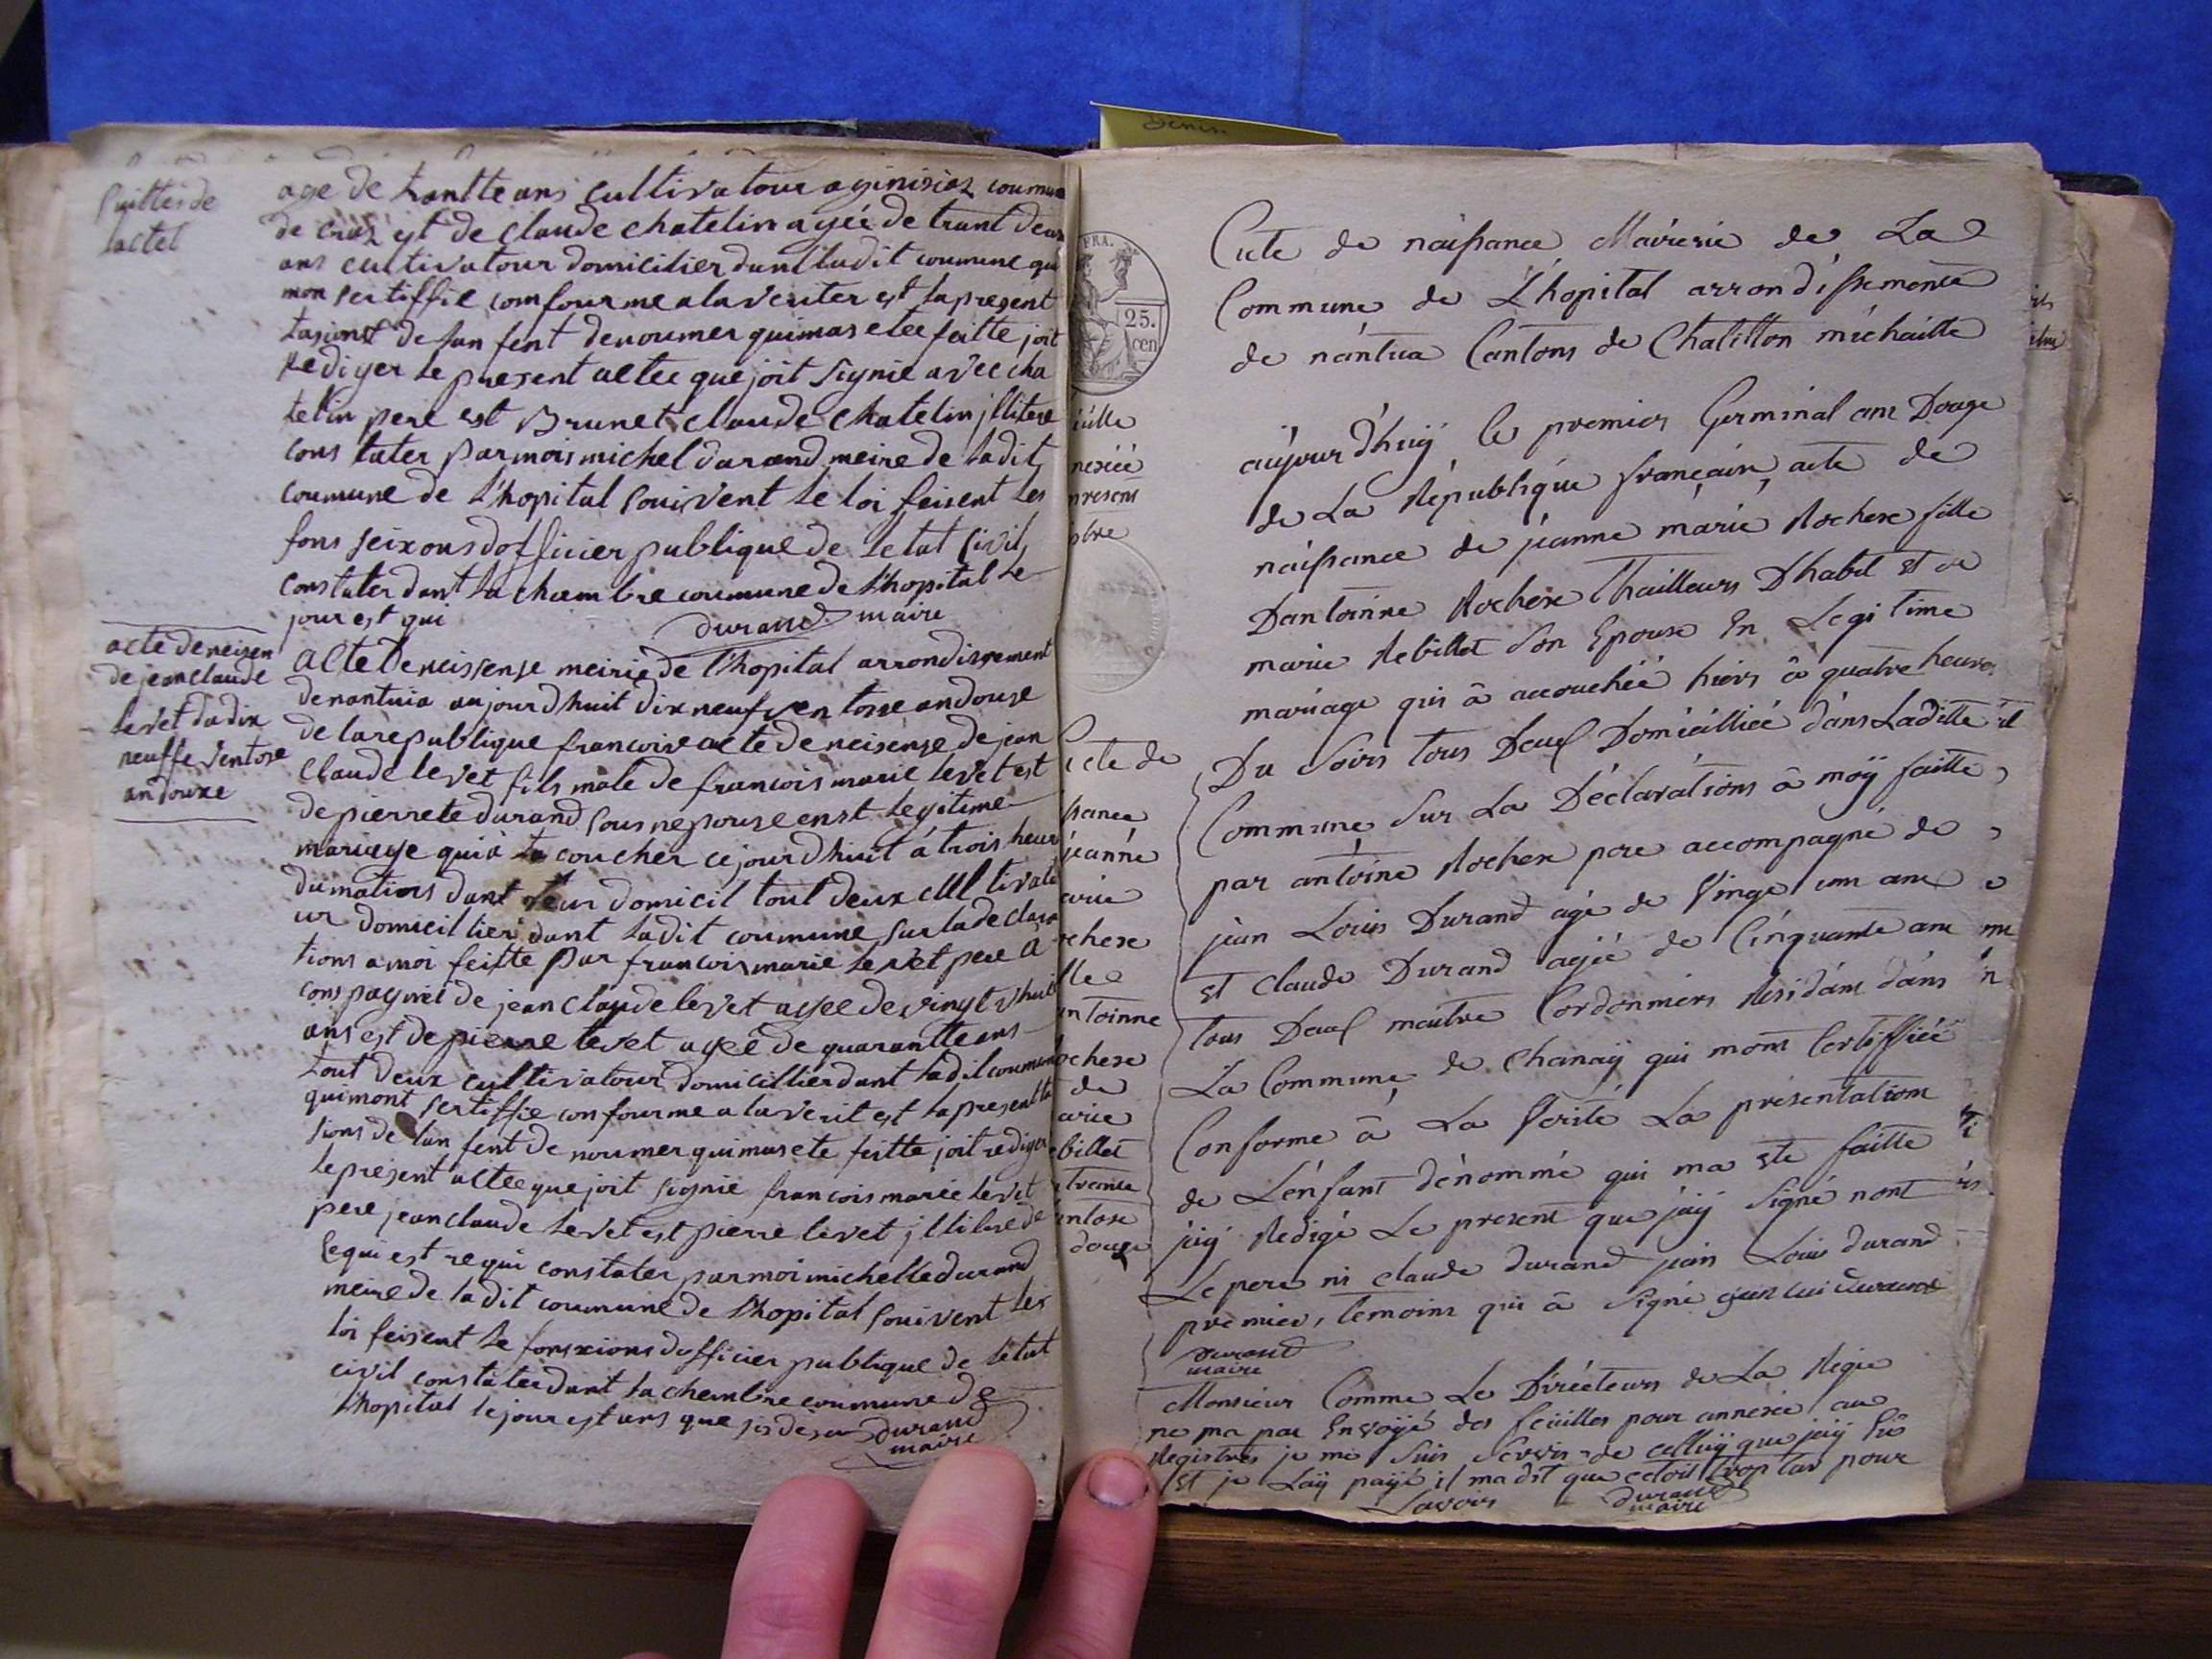 Suitte de
lactet
age de trantte ans cultivatour a ginisiaz coumun
de craz est de claude chatelin agée de trant deux
ans cultivatour domicilier dant ladit coumune qui
mon sertiffie comfourme a la veriter est la present
tasions de lan fent denoumer qui mas etee faitte joit
rediger le present actee que joit signie avec cha
telin pere est Brunet claude chatelin jllitere
cons tater par mois michel durand meire de ladit
coumune de l'hopital souivent le loi feisent les
fons seixons dofficier publique de letat sivil
constater dant la chambre coumune de l'hopital le
jour est qui durand maire
acte de neisen
de jean claude
levet du dix
neuffe ventose
an douxe
acte de neissense meirie de l'hopital arrondissement
de nantuia aujourdhuit dix neuf ventosse an douse
de la republique francoise acte de neisense de jean
claude levet fils male de francois marie levet est
de pierrete durand sons nepouse enst legitime
mariage qui à coucher ce jourdhuit à trois heur
du matiens dant leur domicil tout deux cultivate
ur domicillier dant ladit coumune sur la declara
tions a moi feitte par francois marie levet pere a
conspagnei de jean claude levet agee de vingt vhuit
ans est de pierre levet agee de quarantte ans
tout deux cultivatour domicillier dant ladit coumune
qui mont sertiffie comfourme a la verit est la presentta
sions de lan fent de noumer qui mas ete feitte joit rediger
le present actee que joit signie francois marie levet
pere jean claude levet est pierre levet jllitere de
ce qui est requi constater par moi michelle durand
meire de ladit coumune de l'hopital souivent les
loi feisent le fonsxions dofficier publique de letat
civil constater dant la chembre coumune de
l'hopital le jour est ans que durand
maire
FRA.
25.
cen
Acte de naissance Mairerie de La
Commune de L'hopital arrondissement
de nántua Cantons de Chatillon michaille
aújourd'huÿ le premier Germinal an Douze
de La République française acte de
naissance de jéanne marie Rochere fille
Dantoinne Rochere Thailleurs Dhabit et de
marie Rebillet Son Epouse En Legitime
mariage qui à accouchée hiers à quatre heures
Du Soirs tous Deux Domicilliée dans Laditte
Commune Sur La Déclarations à moÿ faitte
par antoine Rochere pere accompagné de
jean Louis Durand agé de Vingt un ans
et Claude Durand agée de Cinquante ans
tous Deux maitre Cordonniers Résidant dans
La Commune de Chanaÿ qui mont Certiffiée
Conforme à La Verité La présentation
de L'énfant dénommé qui ma ete faitte
jáÿ Redigé Le present que jáÿ Signé nont
Le pere ni claude Durand jean Louis durand
premier, temoins qui à Signé jean lui durand
durand
maire
Monsieur Comme Le Diréeteurs de La Régie
ne ma pas Envoÿé des feuilles pour annexée aux
Registres je me Suis Servis de celluÿ que jaÿ Eü
et je Laÿ paÿé il ma dit que cetoit trop tar pour
Savoirs durand
maire
Acte de
ssance
jéanne
arie
chere
lle
antoinne
ochere
de
arie
billet
trente
entose
douze